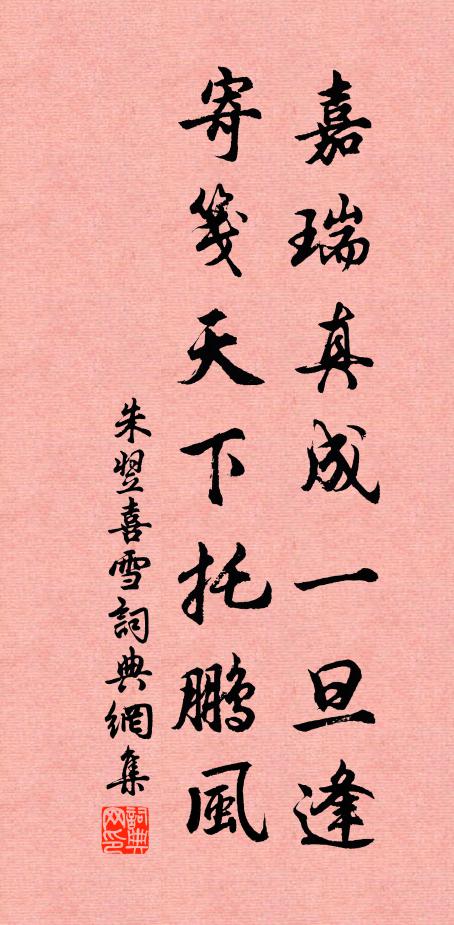 嘉瑞真成一旦逢
寄箋天下托鵬風
朱翌喜雪詞典網集
詞典网印